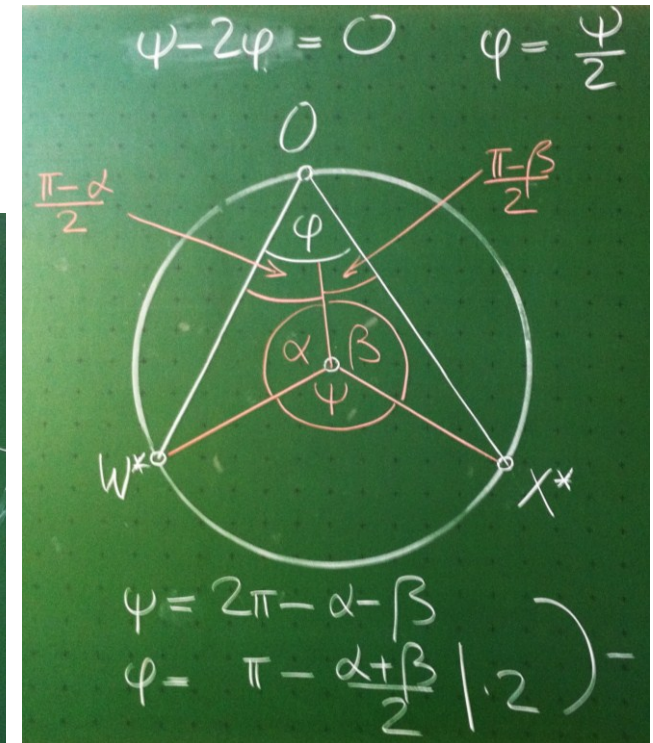 ψ-2φ = 0 φ = ψ/2
O
π-α/2
π-β/2
φ
α β
ψ
W*
X*
ψ = 2π - α - β
φ = π - α+β/2 | ·2 ) -